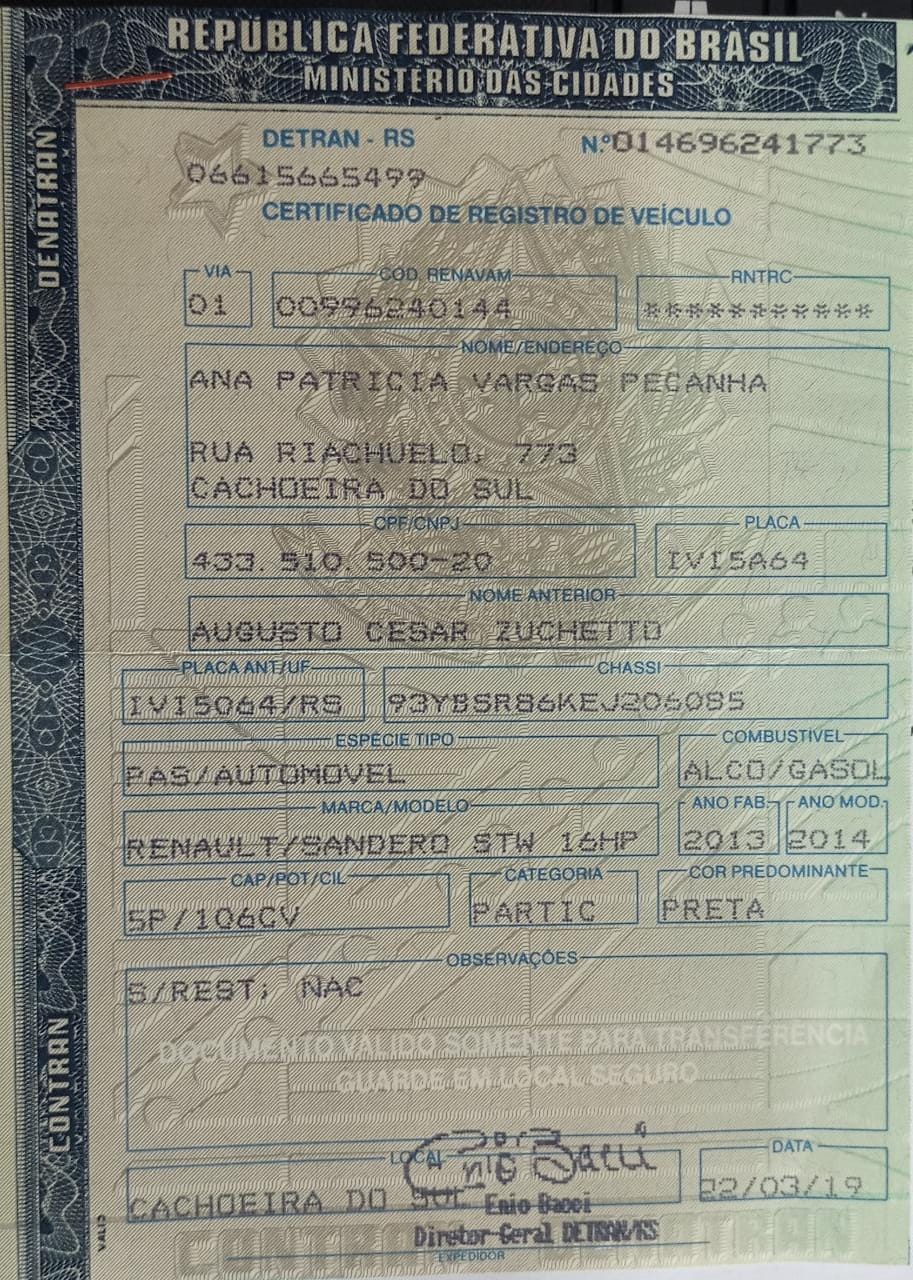 REPÚBLICA FEDERATIVA DO BRASIL
MINISTÉRIO DAS CIDADES
DENATRAN
CONTRAN
DETRAN - RS Nº 014696241773
06615665499
CERTIFICADO DE REGISTRO DE VEÍCULO
VIA COD. RENAVAM RNTRC
01 00996240144 ***********
NOME/ENDEREÇO
ANA PATRICIA VARGAS PECANHA
RUA RIACHUELO, 773
CACHOEIRA DO SUL
CPF/CNPJ PLACA
433.510.500-20 IVI5A64
NOME ANTERIOR
AUGUSTO CESAR ZUCHETTO
PLACA ANT/UF CHASSI
IVI5064/RS 93YBSR86KEJ206085
ESPÉCIE TIPO COMBUSTÍVEL
PAS/AUTOMOVEL ALCO/GASOL
MARCA/MODELO ANO FAB. ANO MOD.
RENAULT/SANDERO STW 16HP 2013 2014
CAP/POT/CIL CATEGORIA COR PREDOMINANTE
5P/106CV PARTIC PRETA
OBSERVAÇÕES
S/REST; NAC
DOCUMENTO VÁLIDO SOMENTE PARA TRANSFERÊNCIA
GUARDE EM LOCAL SEGURO
LOCAL DATA
CACHOEIRA DO SUL 22/03/19
Enio Bacci
Diretor-Geral DETRAN/RS
EXPEDIDOR